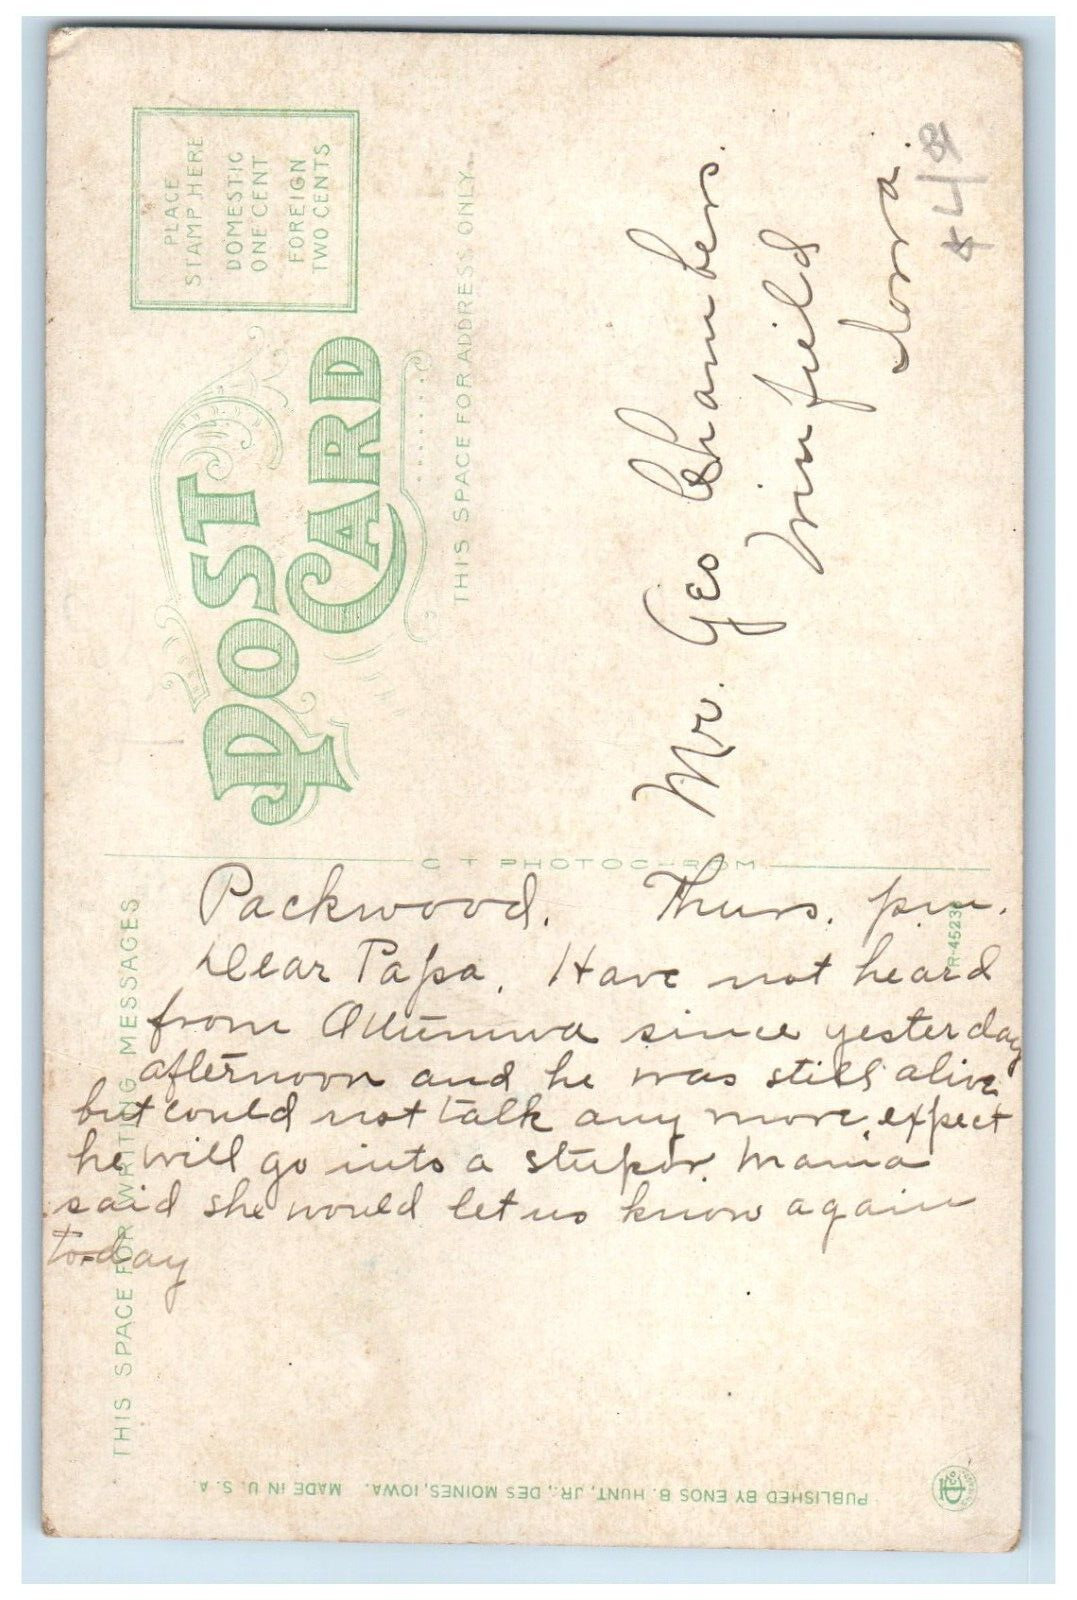 PLACE
STAMP HERE
DOMESTIC
ONE CENT
FOREIGN
TWO CENTS
POST
CARD
THIS SPACE FOR ADDRESS ONLY.
Mr. Geo Chambers.
Winfield
Iowa.
C T PHOTOCHROM
THIS SPACE FOR WRITING MESSAGES
R-45230
Packwood. Thurs. pm.
Dear Papa. Have not heard
from Ottumwa since yesterday
afternoon and he was still alive
but could not talk any more, expect
he will go into a stupor. Mama
said she would let us know again
to-day
PUBLISHED BY ENOS B. HUNT, JR., DES MOINES, IOWA. MADE IN U. S. A.